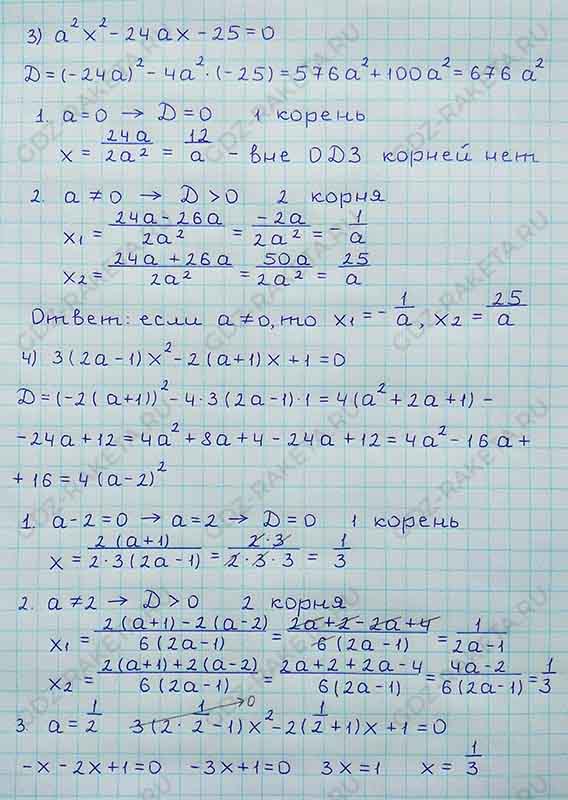 3) a²x² - 24ax - 25 = 0
D = (-24a)² - 4a²·(-25) = 576a² + 100a² = 676a²
1. a=0 → D=0 1 корень
x = 24a/2a² = 12/a - вне ОДЗ корней нет
2. a ≠ 0 → D > 0 2 корня
x₁ = (24a - 26a)/2a² = -2a/2a² = -1/a
x₂ = (24a + 26a)/2a² = 50a/2a² = 25/a
Ответ: если a≠0, то x₁ = -1/a, x₂ = 25/a
4) 3(2a-1)x² - 2(a+1)x + 1 = 0
D = (-2(a+1))² - 4·3(2a-1)·1 = 4(a² + 2a + 1) -
- 24a + 12 = 4a² + 8a + 4 - 24a + 12 = 4a² - 16a +
+ 16 = 4(a-2)²
1. a-2=0 → a=2 → D=0 1 корень
x = 2(a+1)/2·3(2a-1) = 2·3/2·3·3 = 1/3
2. a ≠ 2 → D > 0 2 корня
x₁ = (2(a+1) - 2(a-2))/6(2a-1) = (2a+2-2a+4)/6(2a-1) = 1/(2a-1)
x₂ = (2(a+1) + 2(a-2))/6(2a-1) = (2a+2+2a-4)/6(2a-1) = (4a-2)/6(2a-1) = 1/3
3. a = 1/2 3(2·1/2 - 1)x² → 0 - 2(1/2 + 1)x + 1 = 0
-x - 2x + 1 = 0 -3x + 1 = 0 3x = 1 x = 1/3
GDZ-RAKETA.RU